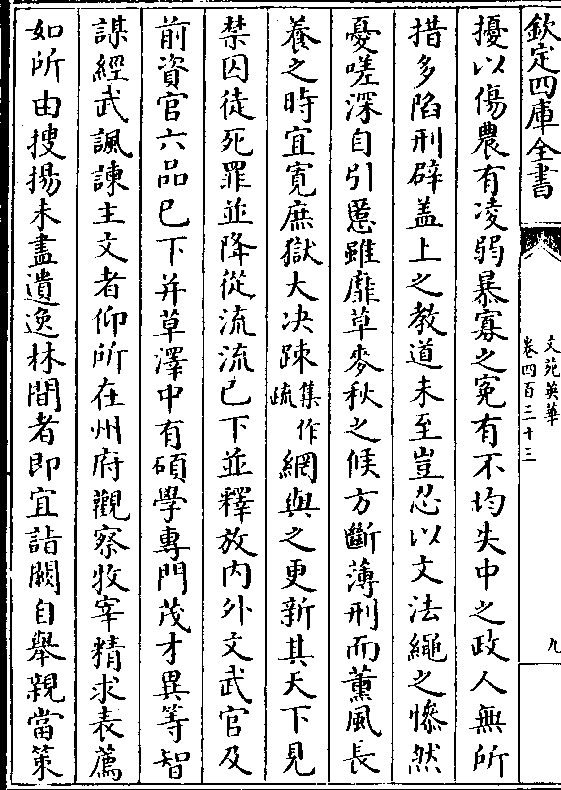 欽定四庫全書
文苑英華
卷四百三十三
九
擾以傷農有凌弱暴寡之寃有不均失中之政人無所
措多陷刑辟盖上之教道未至豈忍以文法䋲之慘然
憂嗟深自引慝雖靡草麥秋之候方斷薄刑而薰風長
養之時宜寛庶獄大决踈集作疏網與之更新其天下見
禁囚徒死罪並降從流流已下並釋放内外文武官及
前資官六品已下并草澤中有碩學專門茂才異等智
謀經武諷諫主文者仰所在州府觀察牧宰精求表薦
如所由搜揚未盡遺逸林間者即宜詣闕自舉親當策